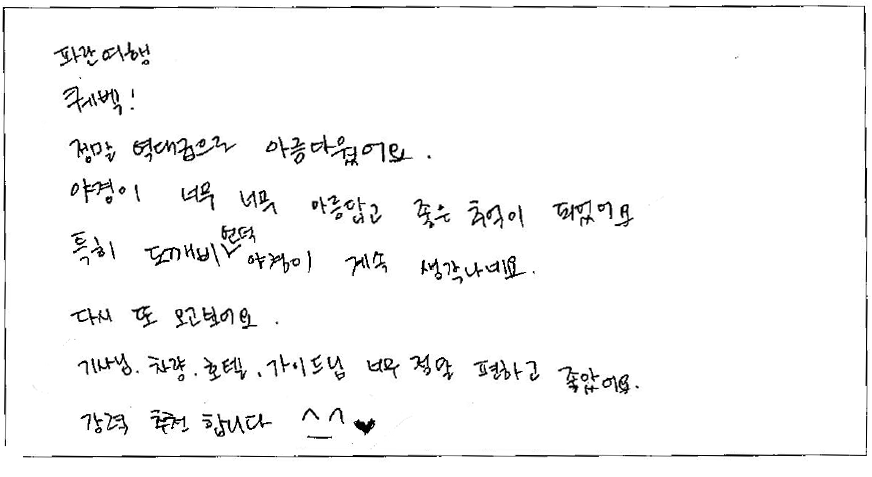 파란여행
퀘벡!
정말 역대급으로 아름다웠어요.
야경이 너무 너무 아름답고 좋은 추억이 되었어요
특히 도깨비언덕 야경이 계속 생각나네요.
다시 또 오고보어요.
기사님, 차량, 호텔, 가이드님 너무 정말 편하고 좋았어요.
강력 추천 합니다 ^_^ ♥